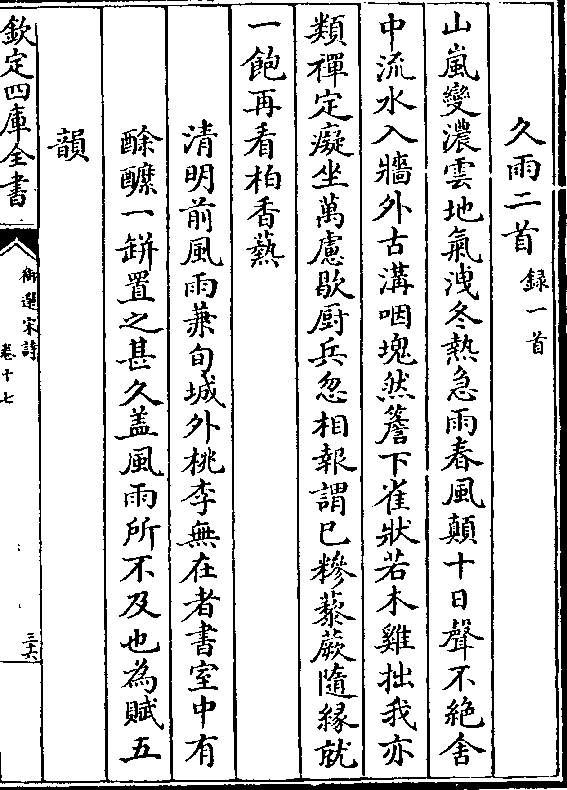 久雨二首錄一首
山嵐變濃雲地氣洩冬熱急雨春風顛十日聲不絶舍
中流水入牆外古溝咽塊然簷下雀狀若木雞拙我亦
類禪定癡坐萬慮歇厨兵忽相報謂已糝藜蕨隨緣就
一飽再看柏香爇
清明前風雨兼旬城外桃李無在者書室中有
酴醾一缾置之甚久盖風雨所不及也為賦五
韻
欽定四庫全書
御選宋詩
卷十七
三六